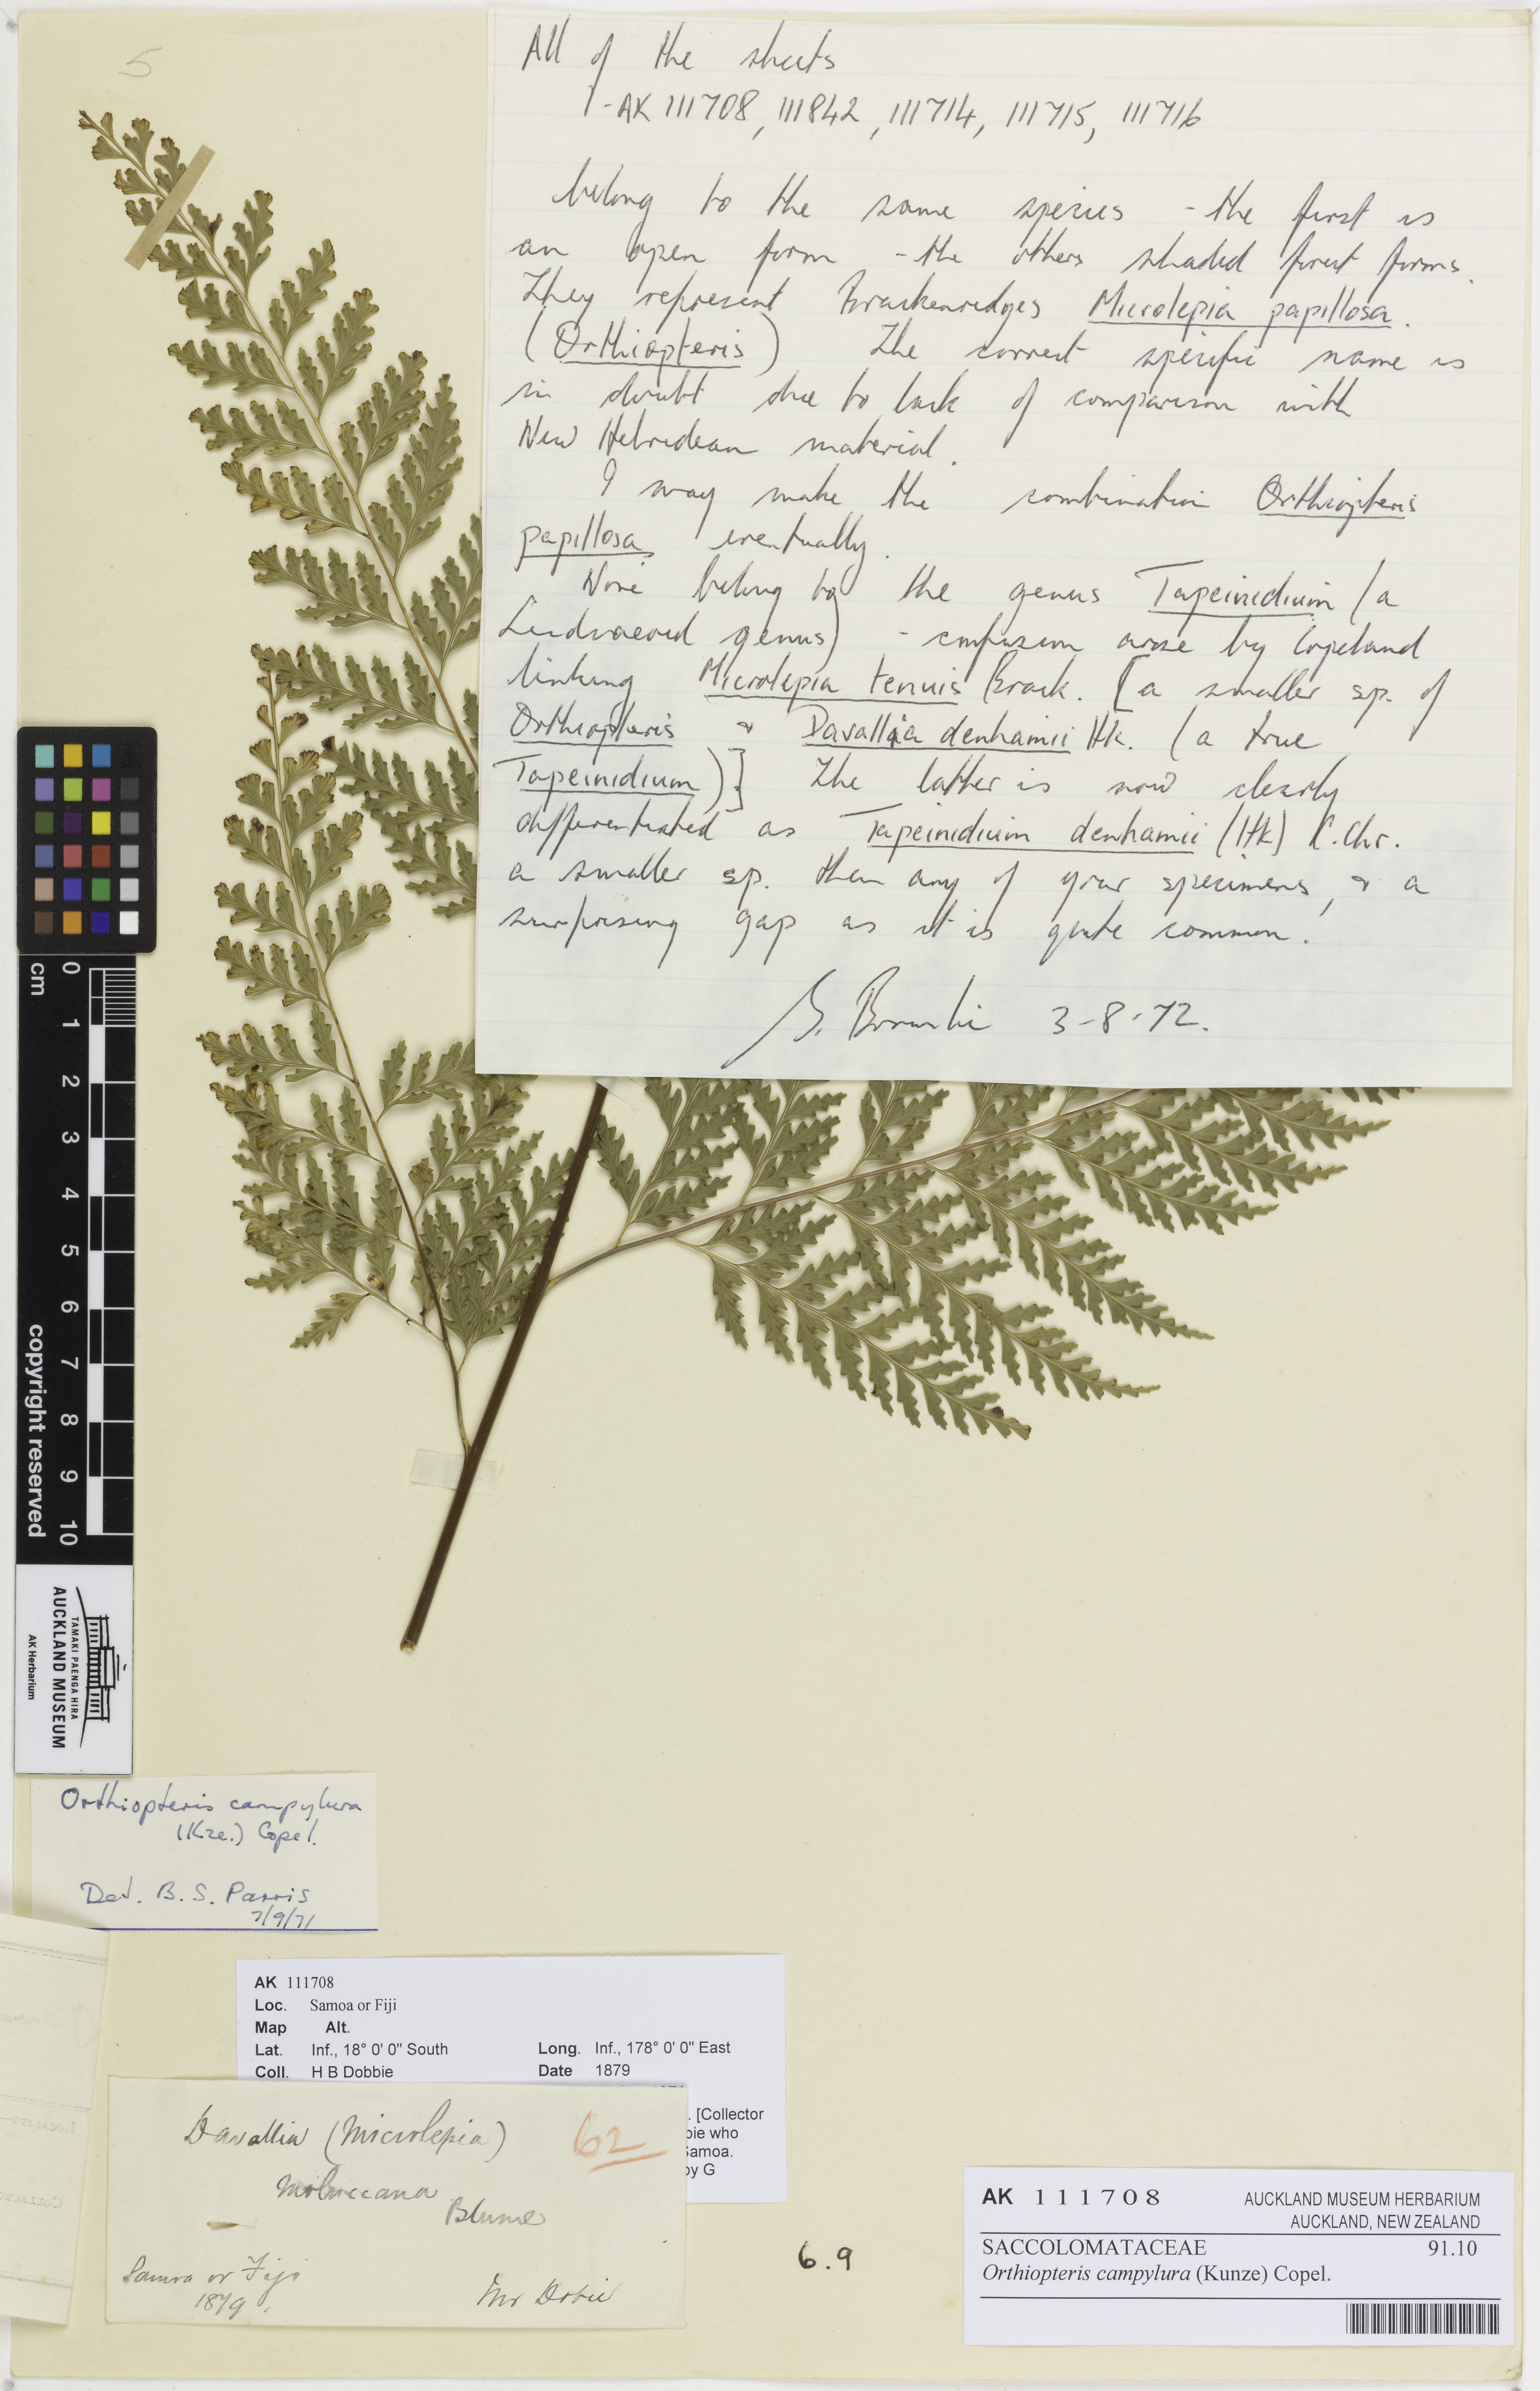 5
All of the sheets
- AK 111708, 111842, 111714, 111715, 111716
belong to the same species - the first is
an open form - the others shaded forest forms.
They represent Brackenridges Microlepia papillosa.
(Orthiopteris) The correct specific name is
in doubt due to lack of comparison with
New Hebridean material.
I may make the combination Orthiopteris
papillosa eventually.
None belong to the genus Tapeinidium (a
Lindsaeoid genus) - confusion arose by Copeland
linking Microlepia tenuis Brack. [a smaller sp. of
Orthiopteris & Davallia denhamii Hk. (a true
Tapeinidium)] The latter is now clearly
differentiated as Tapeinidium denhamii (Hk) C.Chr.
a smaller sp. than any of your specimens, & a
surprising gap as it is quite common.
G. Brownlie 3-8-72.
cm 0 1 2 3 4 5 6 7 8 9 10
copyright reserved
AUCKLAND MUSEUM
TAMAKI PAENGA HIRA
AK Herbarium
Orthiopteris campylura
(Kze.) Copel.
Det. B. S. Parris
7/9/71
AK 111708
Loc. Samoa or Fiji
Map Alt.
Lat. Inf., 18° 0' 0" South Long. Inf., 178° 0' 0" East
Coll. H B Dobbie Date 1879
. [Collector
bie who
Samoa.
by G
Davallia (Microlepia) 62
Moluccana
Blume
Samoa or Fiji
1879.
Mr Dobie
6.9
AK 111708 AUCKLAND MUSEUM HERBARIUM
AUCKLAND, NEW ZEALAND
SACCOLOMATACEAE 91.10
Orthiopteris campylura (Kunze) Copel.